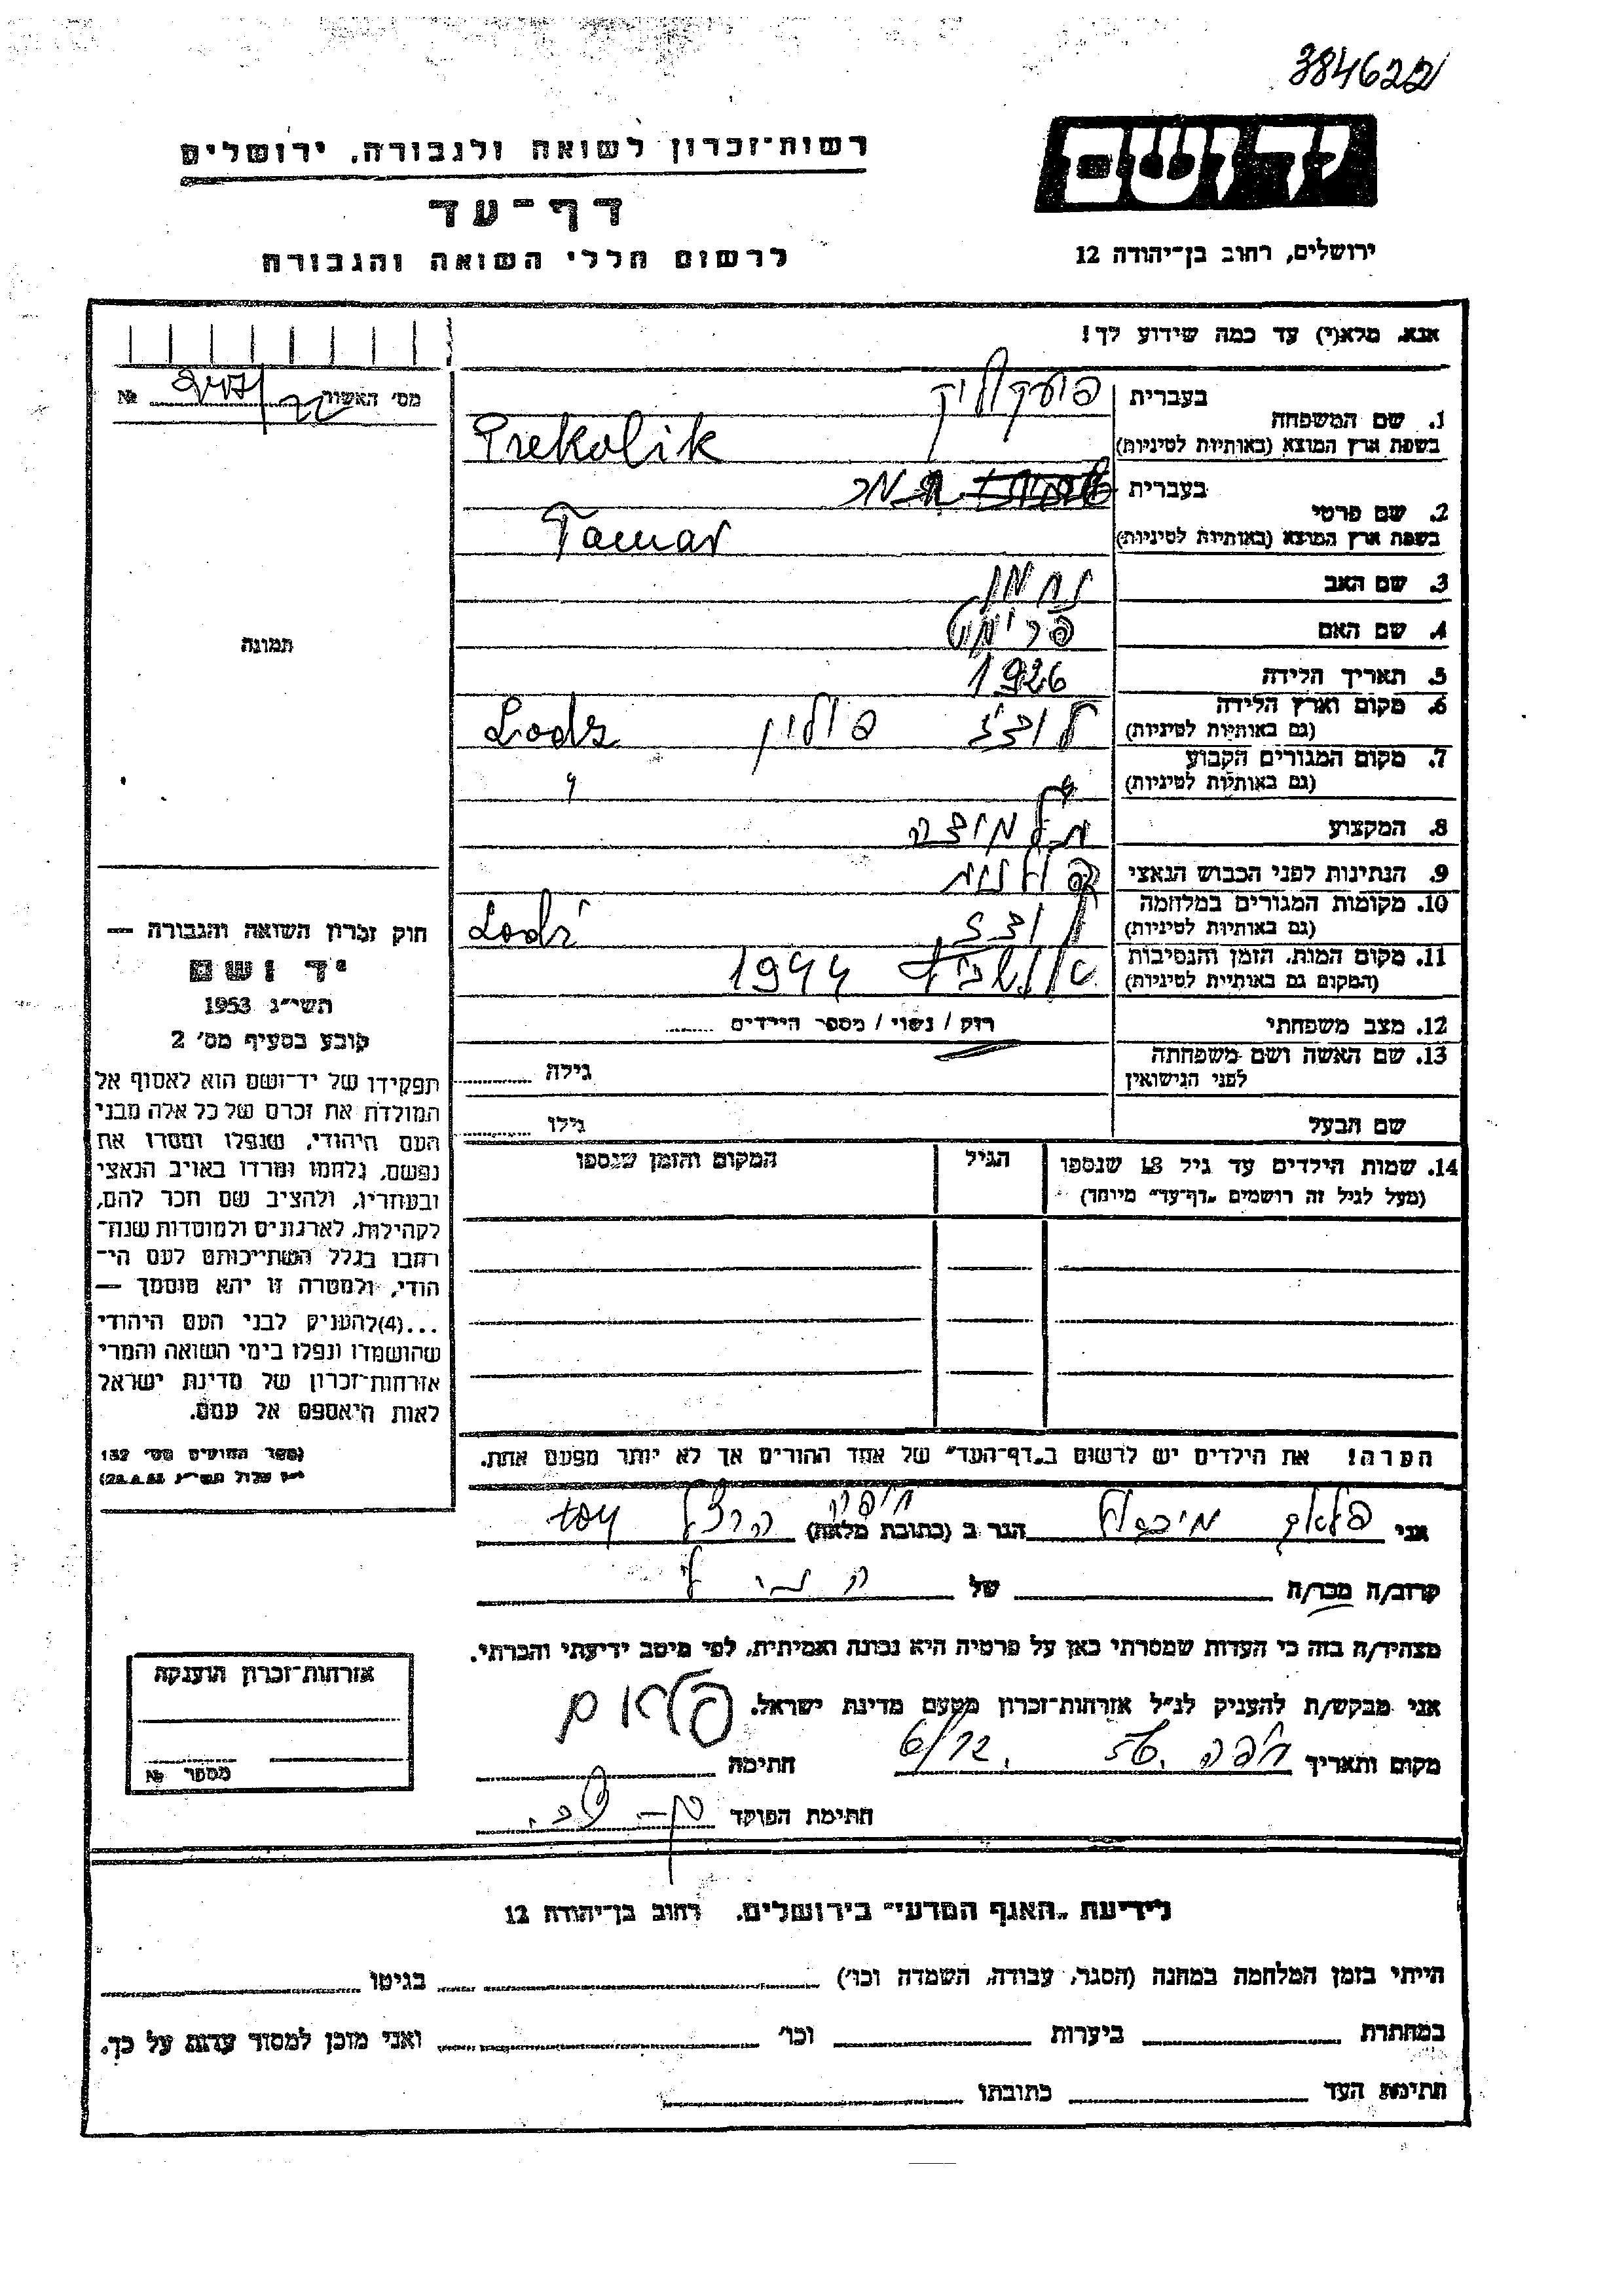 384622
יד ושם
רשות־זכרון לשואה ולגבורה, ירושלים
דף־עד
לרשום חללי השואה והגבורה
ירושלים, רחוב בן־יהודה 12
אנא, מלא(י) עד כמה שידוע לך!
מס' האשור №
1. שם המשפחה
בעברית
בשפת ארץ המוצא (באותיות לטיניות) Prekolik
2. שם פרטי
בעברית תמר
בשפת ארץ המוצא (באותיות לטיניות) Tamar
3. שם האב נחמן
4. שם האם
5. תאריך הלידה 1926
6. מקום וארץ הלידה לודז פולין Lodz
(גם באותיות לטיניות)
7. מקום המגורים הקבוע
(גם באותיות לטיניות)
8. המקצוע
9. הנתינות לפני הכבוש הנאצי פולנית
10. מקומות המגורים במלחמה לודז Lodz
(גם באותיות לטיניות)
11. מקום המות, הזמן והנסיבות 1944
(המקום גם באותיות לטיניות)
12. מצב משפחתי רווק / נשוי / מספר הילדים
13. שם האשה ושם משפחתה גילה
לפני הנישואין
שם הבעל גילו
14. שמות הילדים עד גיל 18 שנספו הגיל המקום והזמן שנספו
(מעל לגיל זה רושמים „דף־עד” מיוחד)
הערה! את הילדים יש לרשום ב„דף־העד” של אחד ההורים אך לא יותר מפעם אחת.
תמונה
חוק זכרון השואה והגבורה —
יד ושם
תשי"ג 1953
קובע בסעיף מס' 2
תפקידו של יד־ושם הוא לאסוף אל
המולדת את זכרם של כל אלה מבני
העם היהודי, שנפלו ומסרו את
נפשם, נלחמו ומרדו באויב הנאצי
ובעוזריו, ולהציב שם וזכר להם,
לקהילות, לארגונים ולמוסדות שנח־
רבו בגלל השתייכותם לעם הי־
הודי, ולמטרה זו יהא מוסמך —
...(4) להעניק לבני העם היהודי
שהושמדו ונפלו בימי השואה והמרי
אזרחות־זכרון של מדינת ישראל
לאות היאספם אל עמם.
(ספר החוקים מס' 132
אני מיכאל הגר ב (כתובת מלאה) חיפה הרצל
קרוב/ה מכר/ה של
מצהיר/ה בזה כי העדות שמסרתי כאן על פרטיה היא נכונה ואמיתית, לפי מיטב ידיעתי והכרתי.
אני מבקש/ת להעניק לנ"ל אזרחות־זכרון מטעם מדינת ישראל.
מקום ותאריך חיפה 6/12. 56. חתימה
חתימת הפוקד
אזרחות־זכרון הוענקה
מספר №
לידיעת „האגף המדעי” בירושלים, רחוב בן־יהודה 12
הייתי בזמן המלחמה במחנה (הסגר, עבודה, השמדה וכו') בגיטו
במחתרת ביערות וכו' ואני מוכן למסור עדות על כך.
חתימת העד כתובתו